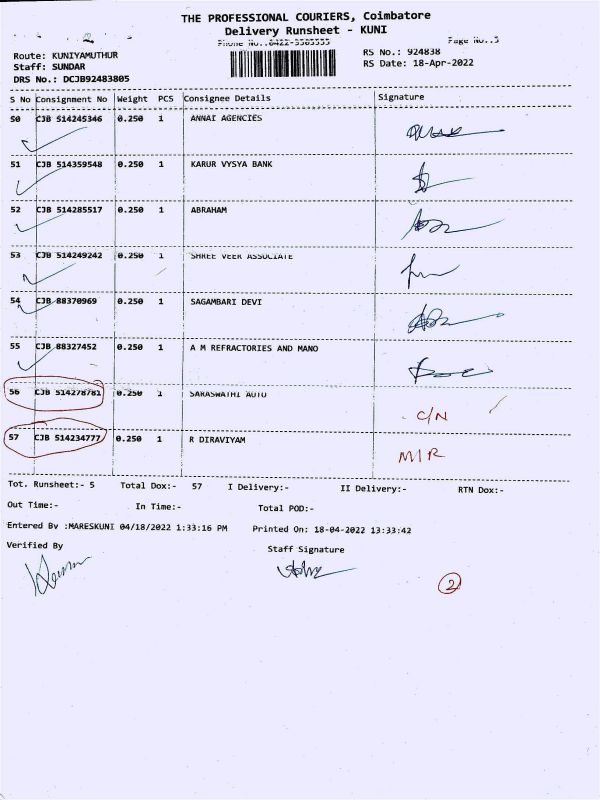 THE PROFESSIONAL COURIERS, Coimbatore
Delivery Runsheet - KUNI
2
Phone No..:0422-3585555 Page No..5
Route: KUNIYAMUTHUR RS No.: 924838
Staff: SUNDAR RS Date: 18-Apr-2022
DRS No.: DCJB92483805
S No Consignment No Weight PCS Consignee Details Signature
50 CJB 514245346 0.250 1 ANNAI AGENCIES
51 CJB 514359548 0.250 1 KARUR VYSYA BANK
52 CJB 514285517 0.250 1 ABRAHAM
53 CJB 514249242 0.250 1 SHREE VEER ASSOCIATE
54 CJB 88370969 0.250 1 SAGAMBARI DEVI
55 CJB 88327452 0.250 1 A M REFRACTORIES AND MANO
56 CJB 514278781 0.250 1 SARASWATHI AUTO C/N
57 CJB 514234777 0.250 1 R DIRAVIYAM M/R
Tot. Runsheet:- 5 Total Dox:- 57 I Delivery:- II Delivery:- RTN Dox:-
Out Time:- In Time:- Total POD:-
Entered By :MARESKUNI 04/18/2022 1:33:16 PM Printed On: 18-04-2022 13:33:42
Verified By Staff Signature
2